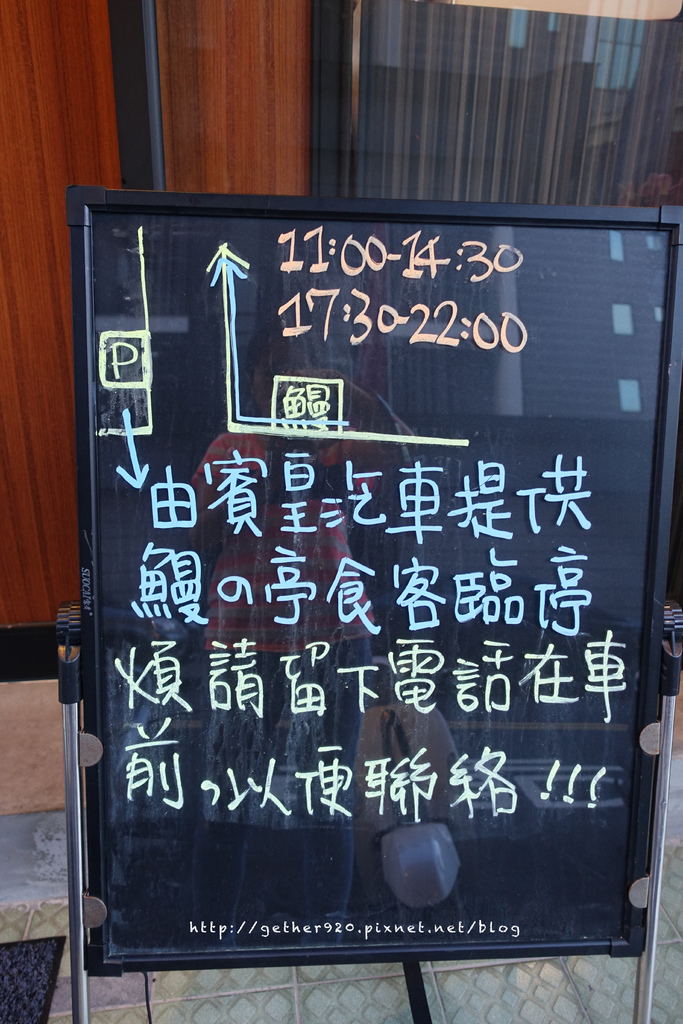 11:00-14:30
17:30-22:00
P
鰻
由賓皇汽車提供
鰻の亭食客臨停
煩請留下電話在車
前,以便聯絡!!!
http://gether920.pixnet.net/blog